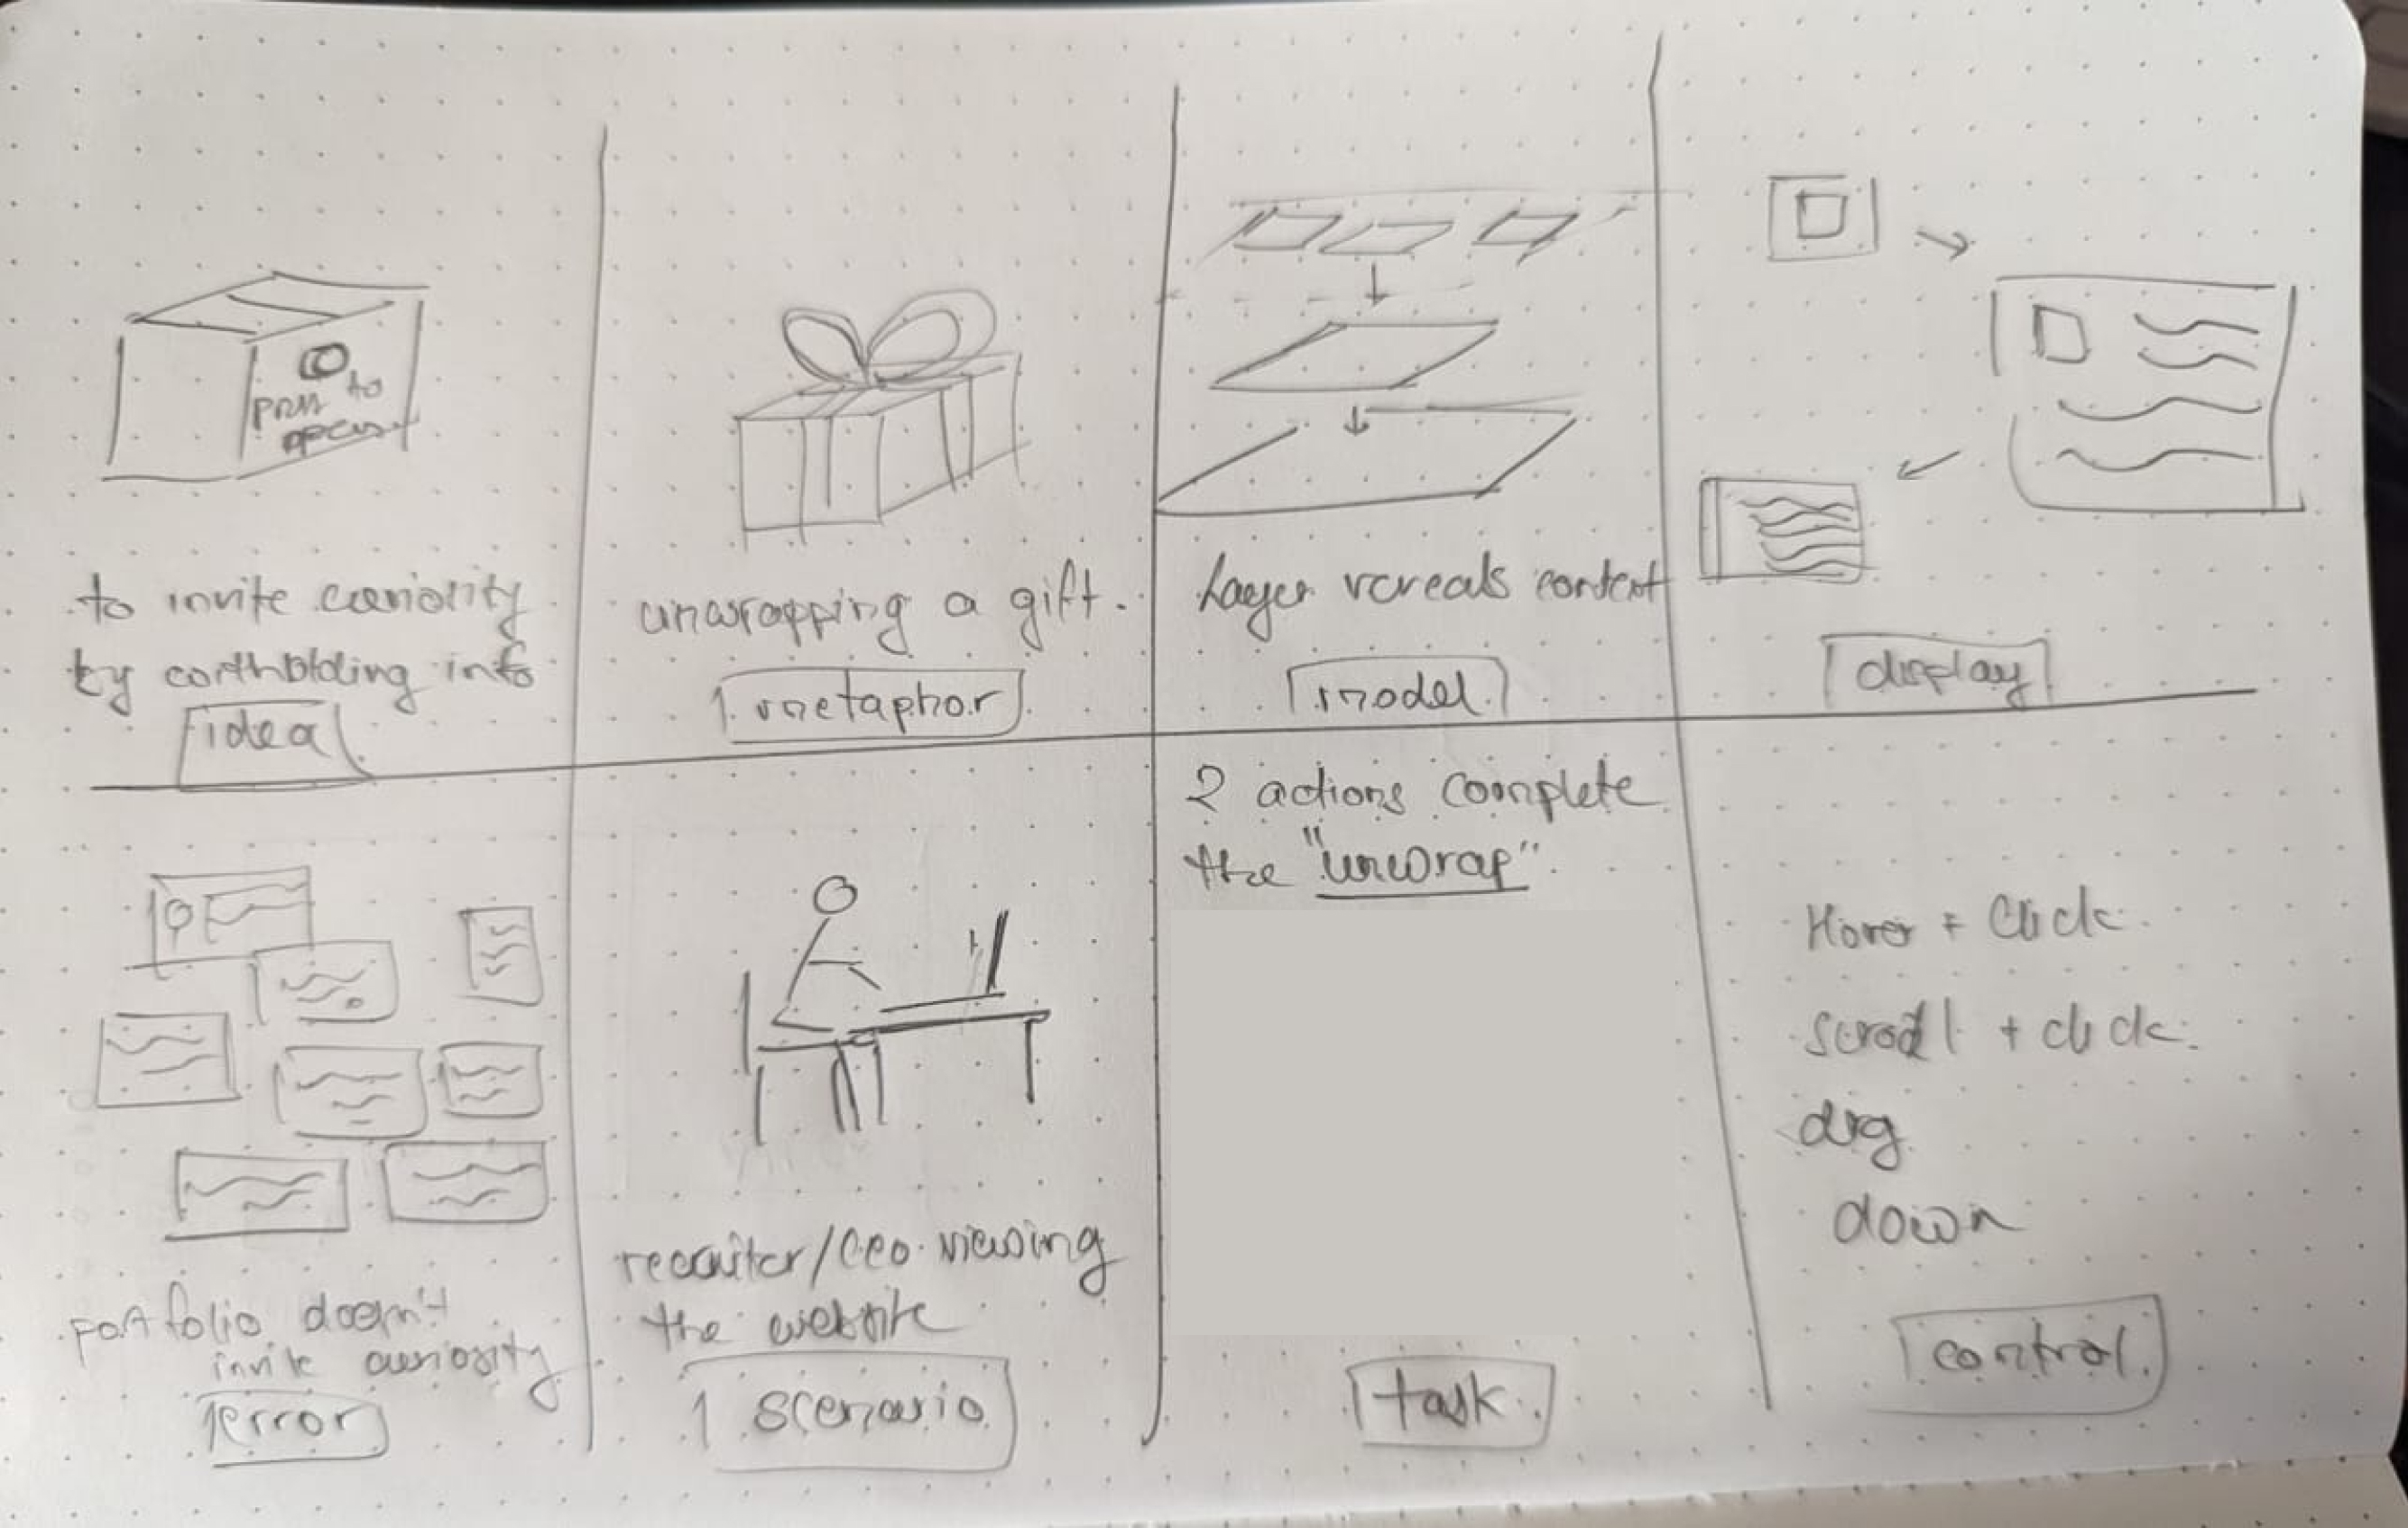 press to
open
to invite curiosity
by withholding info
idea
unwrapping a gift.
metaphor
Layer reveals content
model
display
portfolio doesn't
invite curiosity
error
recruiter/CEO viewing
the website
scenario
2 actions complete
the "unwrap"
task
Hover + Click
Scroll + click
drg
down
control